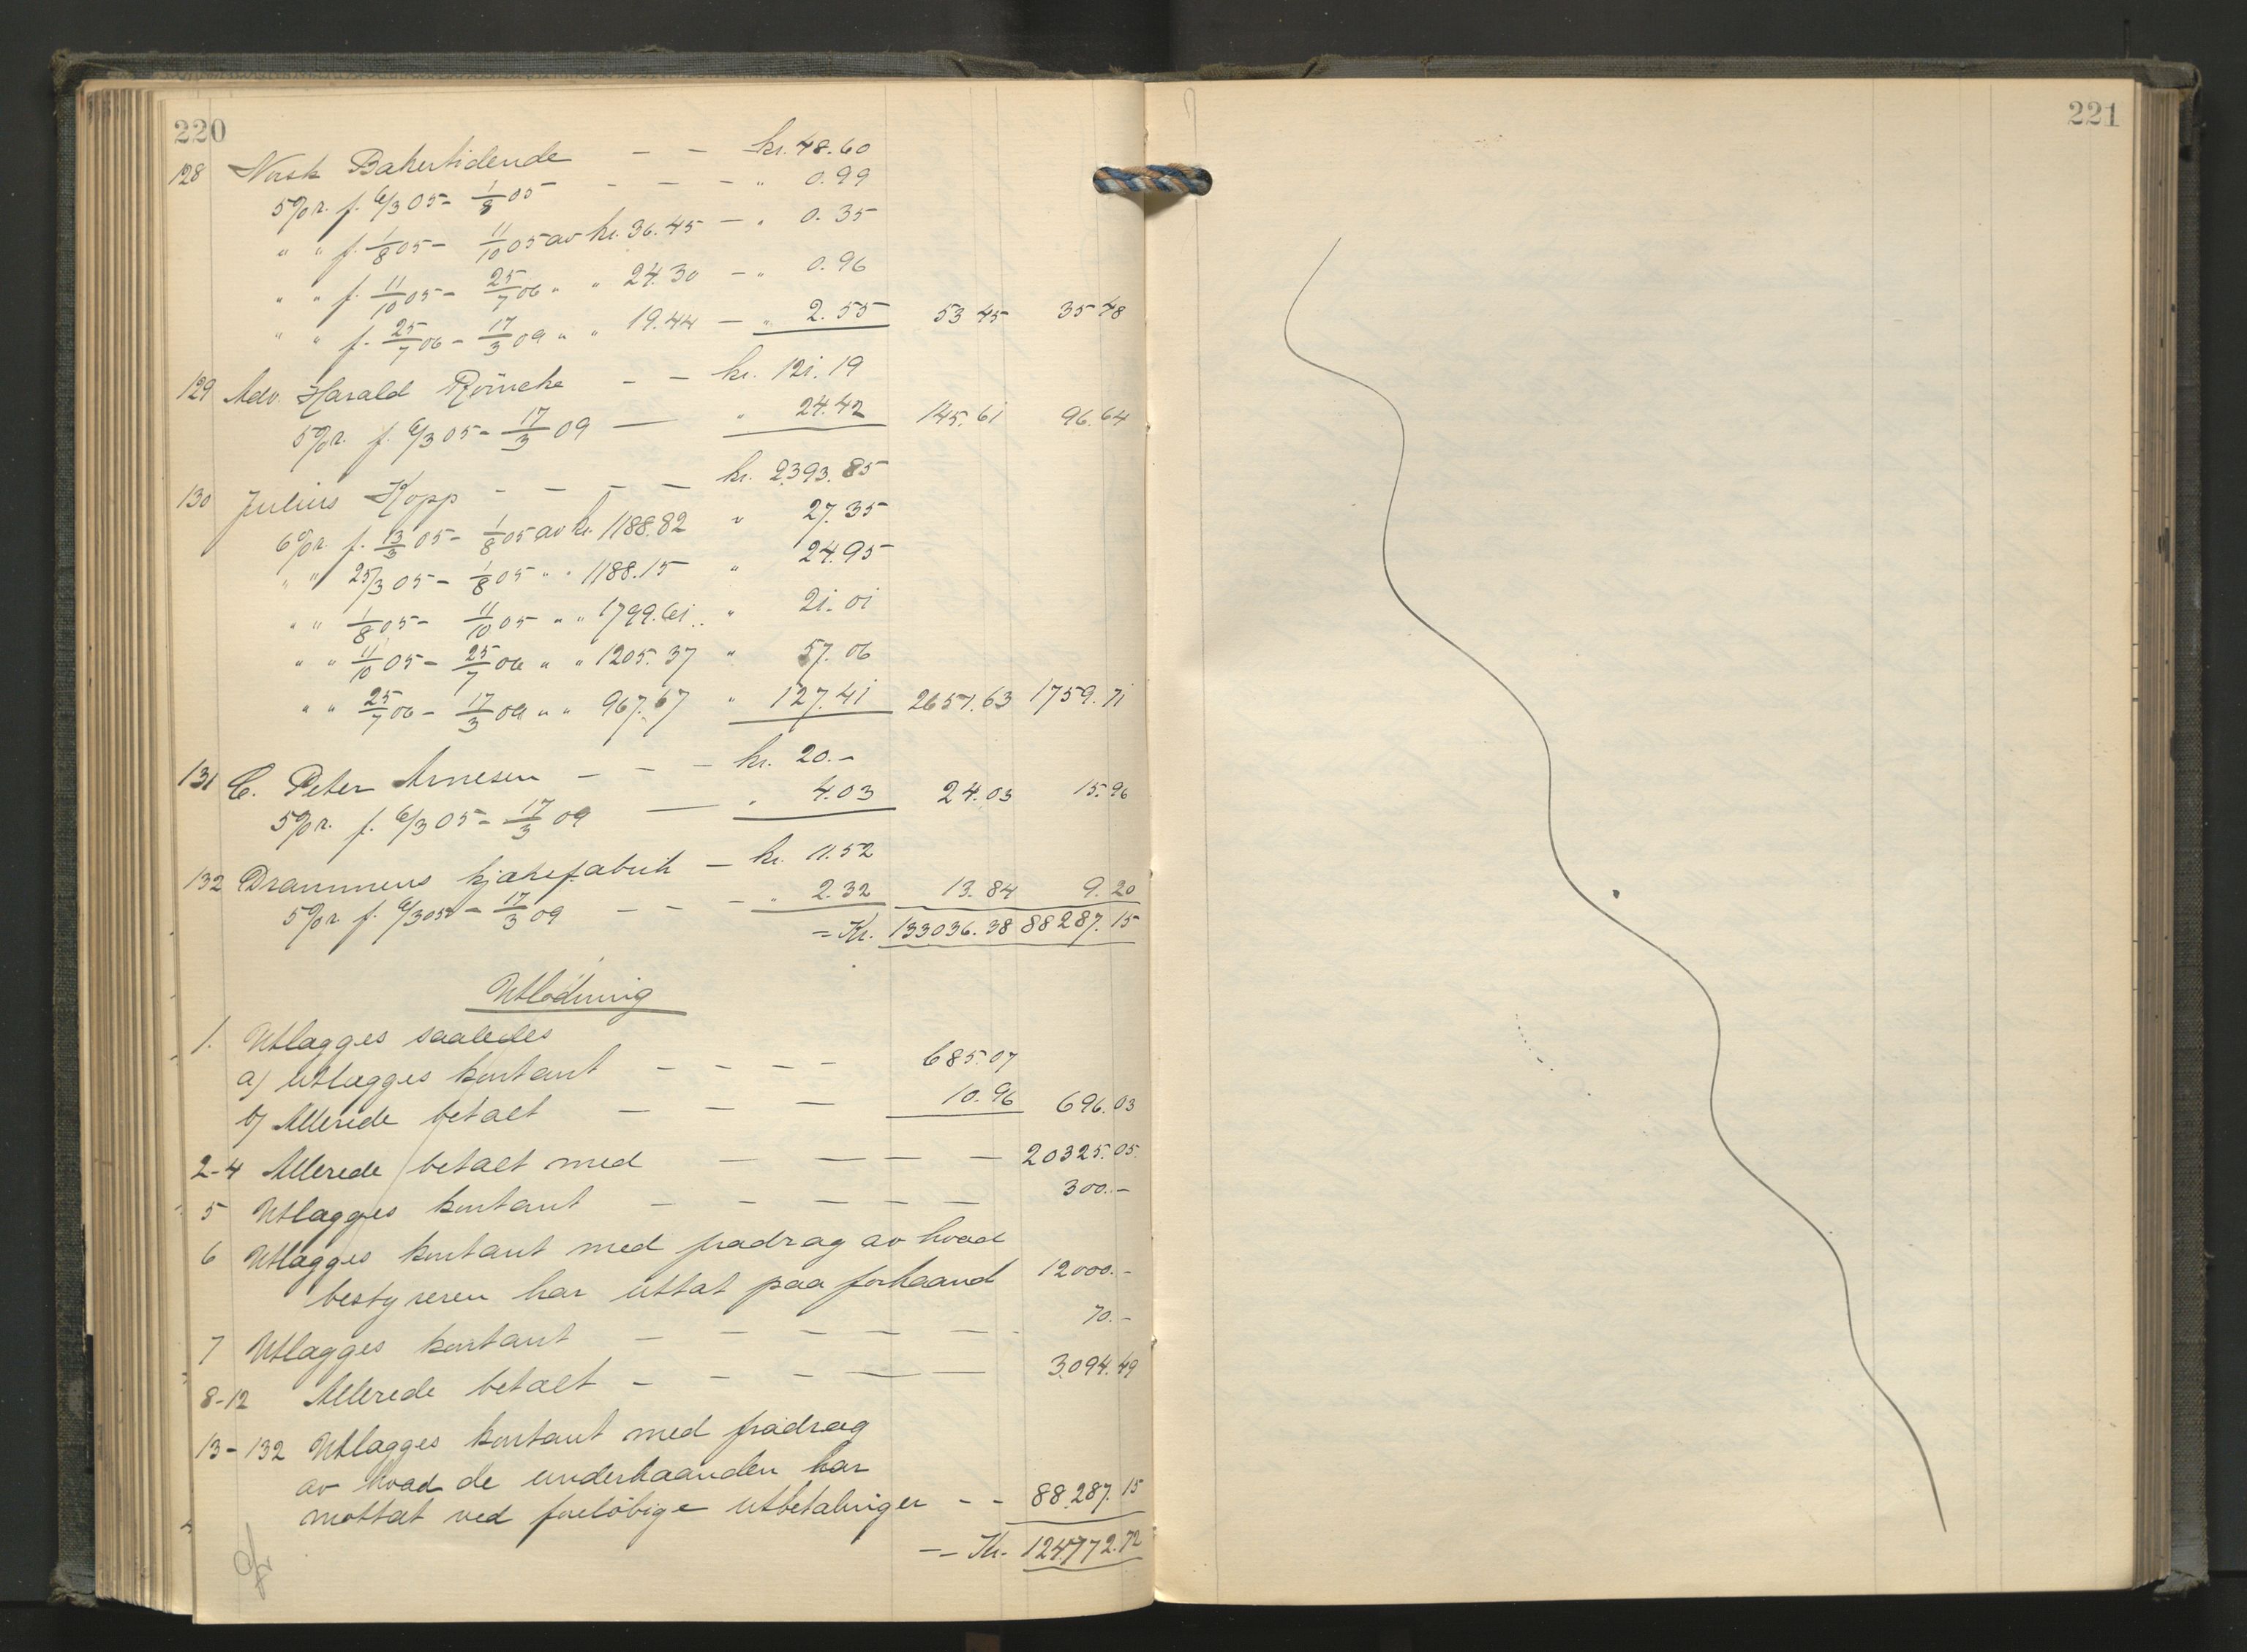 220
128 Norsk Bakertidende — — kr. 48.60
5% r. f. 6/3 05 – 1/8 05 – — — — " 0.99
" " f. 1/8 05 – 11/10 05 av kr. 36.45 — " 0.35
" " f. 11/10 05 – 25/7 06 " " 24.30 — " 0.96
" " f. 25/7 06 – 17/3 09 " " 19.44 — " 2.55 53 45 35 48
129 Adv. Harald — — kr. 121.19
5% r. f. 6/3 05 – 17/3 09 — " 24.42 145.61 96.64
130 Julius Kopp — — — — kr. 2393.85
6% r. f. 13/3 05 – 1/8 05 av kr. 1188.82 " 27.35
" " 25/3 05 – 1/8 05 " " 1188.15 " 24.95
" " 1/8 05 – 11/10 05 " " 1799.61 " 21.01
" " 11/10 05 – 25/7 06 " " 1205.37 " 57.06
" " 25/7 06 – 17/3 09 " " 967.67 " 127.41 2651.63 1759.71
131 C. Peter Arnesen — — — kr. 20.–
5% r. f. 6/3 05 – 17/3 09 — " 4.03 24.03 15.96
132 Drammens kjæxefabrik — kr. 11.52
5% r f. 6/3 05 – 17/3 09 — — — " 2.32 13.84 9.20
= Kr. 133036.38 88287.15
Utlodning
1. Utlægges saaledes
a) Utlægges kontant — — — — 685.07
b) Allerede betalt — — — 10.96 696.03
2-4 Allerede betalt med — — — — 20325.05
5 Utlægges kontant — — — — — 300.–
6 Utlægges kontant med fradrag av hvad
bestyreren har uttat paa forhaand 12000.–
7 Utlægges kontant — — — — — 70.–
8-12 Allerede betalt — — — — — 3094.49
13-132 Utlægges kontant med fradrag
av hvad de underhaanden har
mottat ved foreløbige utbetalinger — — 88287.15
— = Kr. 124772.72
221